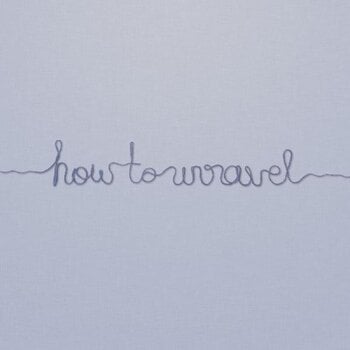 how to unravel